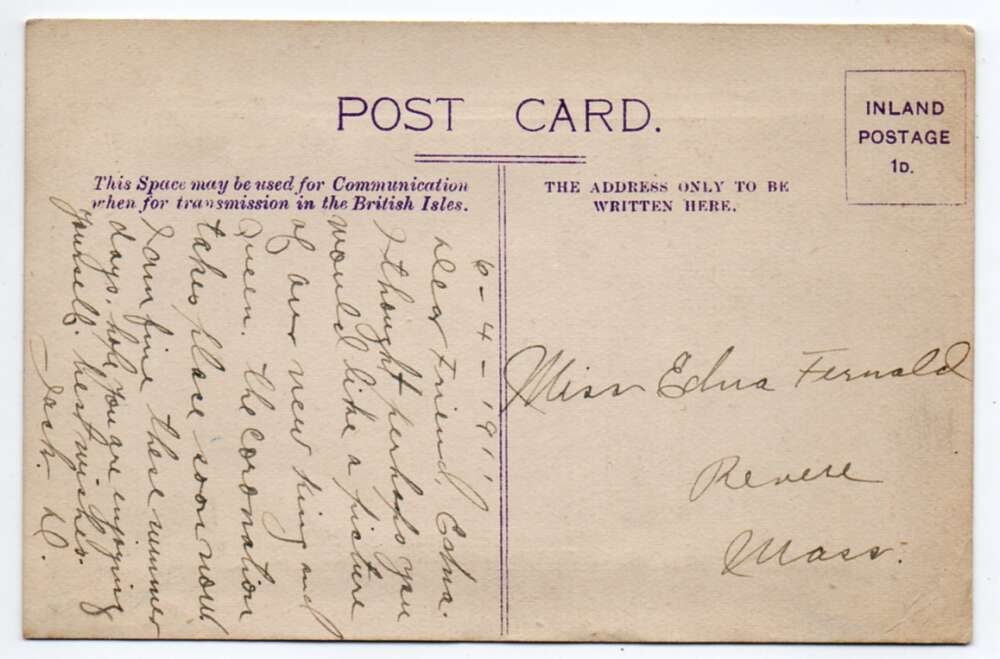 POST CARD.
INLAND
POSTAGE
1D.
This Space may be used for Communication
when for transmission in the British Isles.
THE ADDRESS ONLY TO BE
WRITTEN HERE.
6-4-1911
Dear Friend, Edna.
I thought perhaps you
would like a picture
of our new King and
Queen. The Coronation
takes place soon now
I am fine these summer
days. hope you are enjoying
yourself. best wishes.
Jack. D.
Miss Edna Fernald
Revere
Mass.